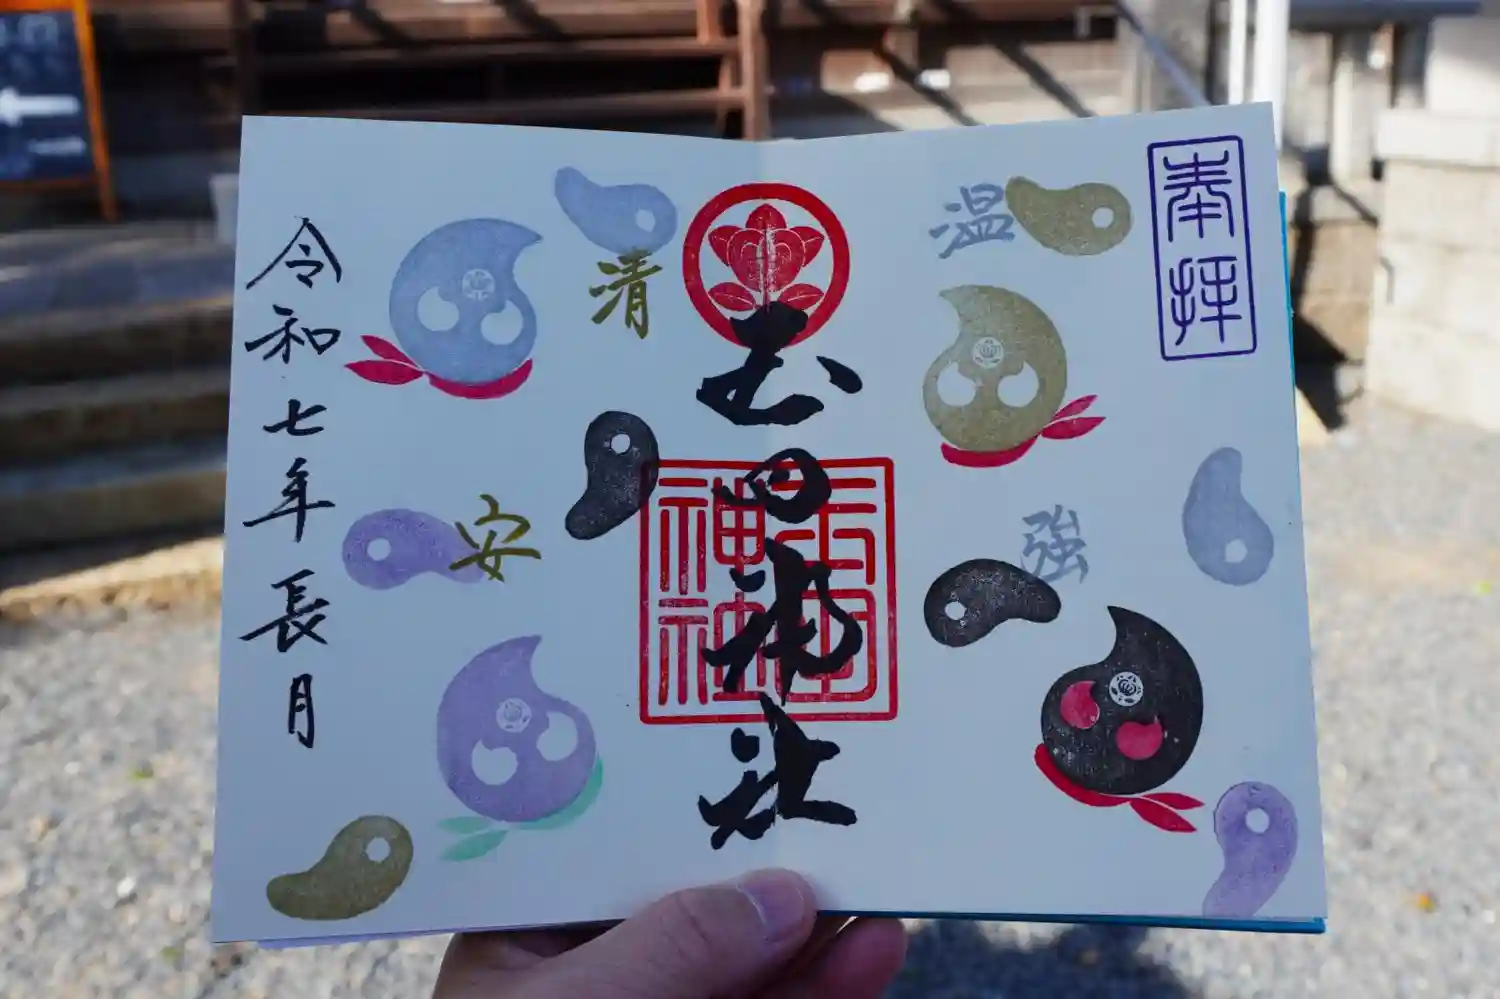 奉拝
温
強
玉田神社
玉田
神社
清
安
令和七年長月